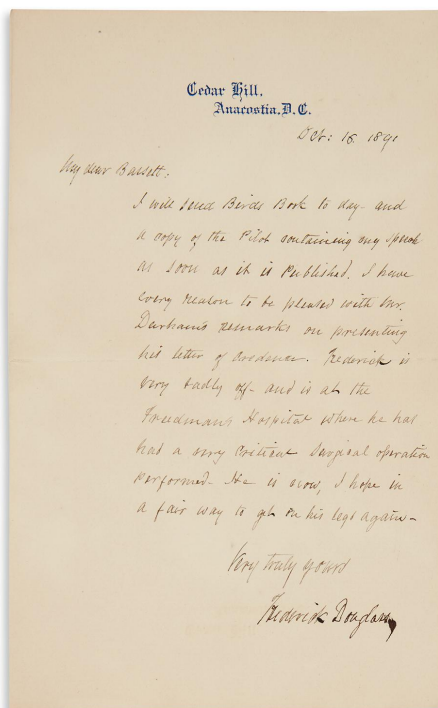 Cedar Hill,
Anacostia, D.C.
Oct: 16. 1891
My dear Bassett:
I will send Birds Book to day- and
a copy of the Pilot containing my speech
as soon as it is Published. I have
every reason to be pleased with Mr.
Durham's remarks on presenting
his letter of credence. Frederick is
very badly off- and is at the
Freedmans Hospital where he has
had a very critical surgical operation
performed- He is now, I hope in
a fair way to get on his legs again-
Very truly yours
Frederick Douglass